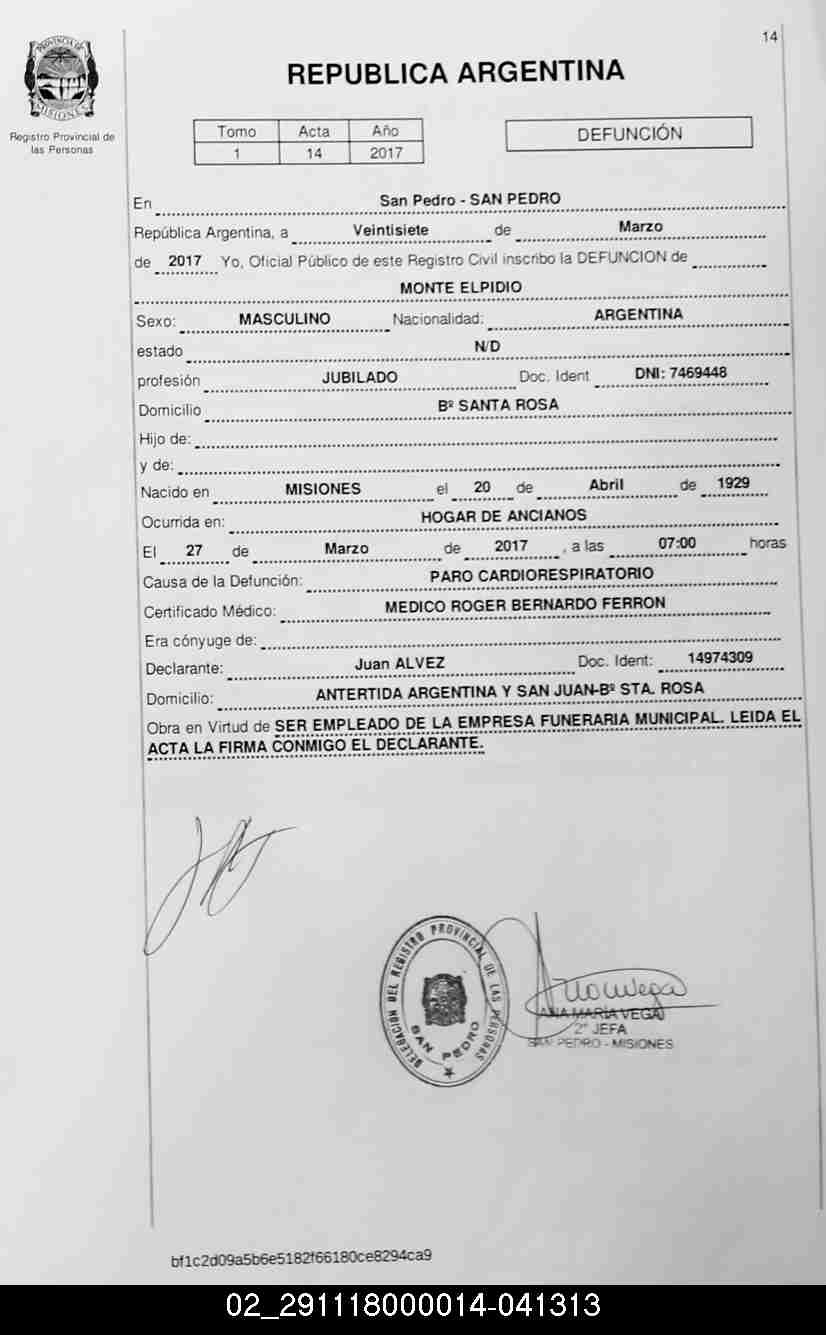 14
PROVINCIA DE
MISIONES
Registro Provincial de
las Personas
REPUBLICA ARGENTINA
Tomo Acta Año
1 14 2017
DEFUNCIÓN
En San Pedro - SAN PEDRO
República Argentina, a Veintisiete de Marzo
de 2017 Yo, Oficial Público de este Registro Civil inscribo la DEFUNCION de
MONTE ELPIDIO
Sexo: MASCULINO Nacionalidad: ARGENTINA
estado N/D
profesión JUBILADO Doc. Ident DNI: 7469448
Domicilio Bº SANTA ROSA
Hijo de:
y de:
Nacido en MISIONES el 20 de Abril de 1929
Ocurrida en: HOGAR DE ANCIANOS
El 27 de Marzo de 2017, a las 07:00 horas
Causa de la Defunción: PARO CARDIORESPIRATORIO
Certificado Médico: MEDICO ROGER BERNARDO FERRON
Era cónyuge de:
Declarante: Juan ALVEZ Doc. Ident: 14974309
Domicilio: ANTERTIDA ARGENTINA Y SAN JUAN-Bº STA. ROSA
Obra en Virtud de SER EMPLEADO DE LA EMPRESA FUNERARIA MUNICIPAL. LEIDA EL
ACTA LA FIRMA CONMIGO EL DECLARANTE.
DELEGACIÓN DEL REGISTRO PROVINCIAL DE LAS PERSONAS
SAN PEDRO
ANA MARIA VEGA
2º JEFA
SAN PEDRO - MISIONES
bf1c2d09a5b6e5182f66180ce8294ca9
02_291118000014-041313